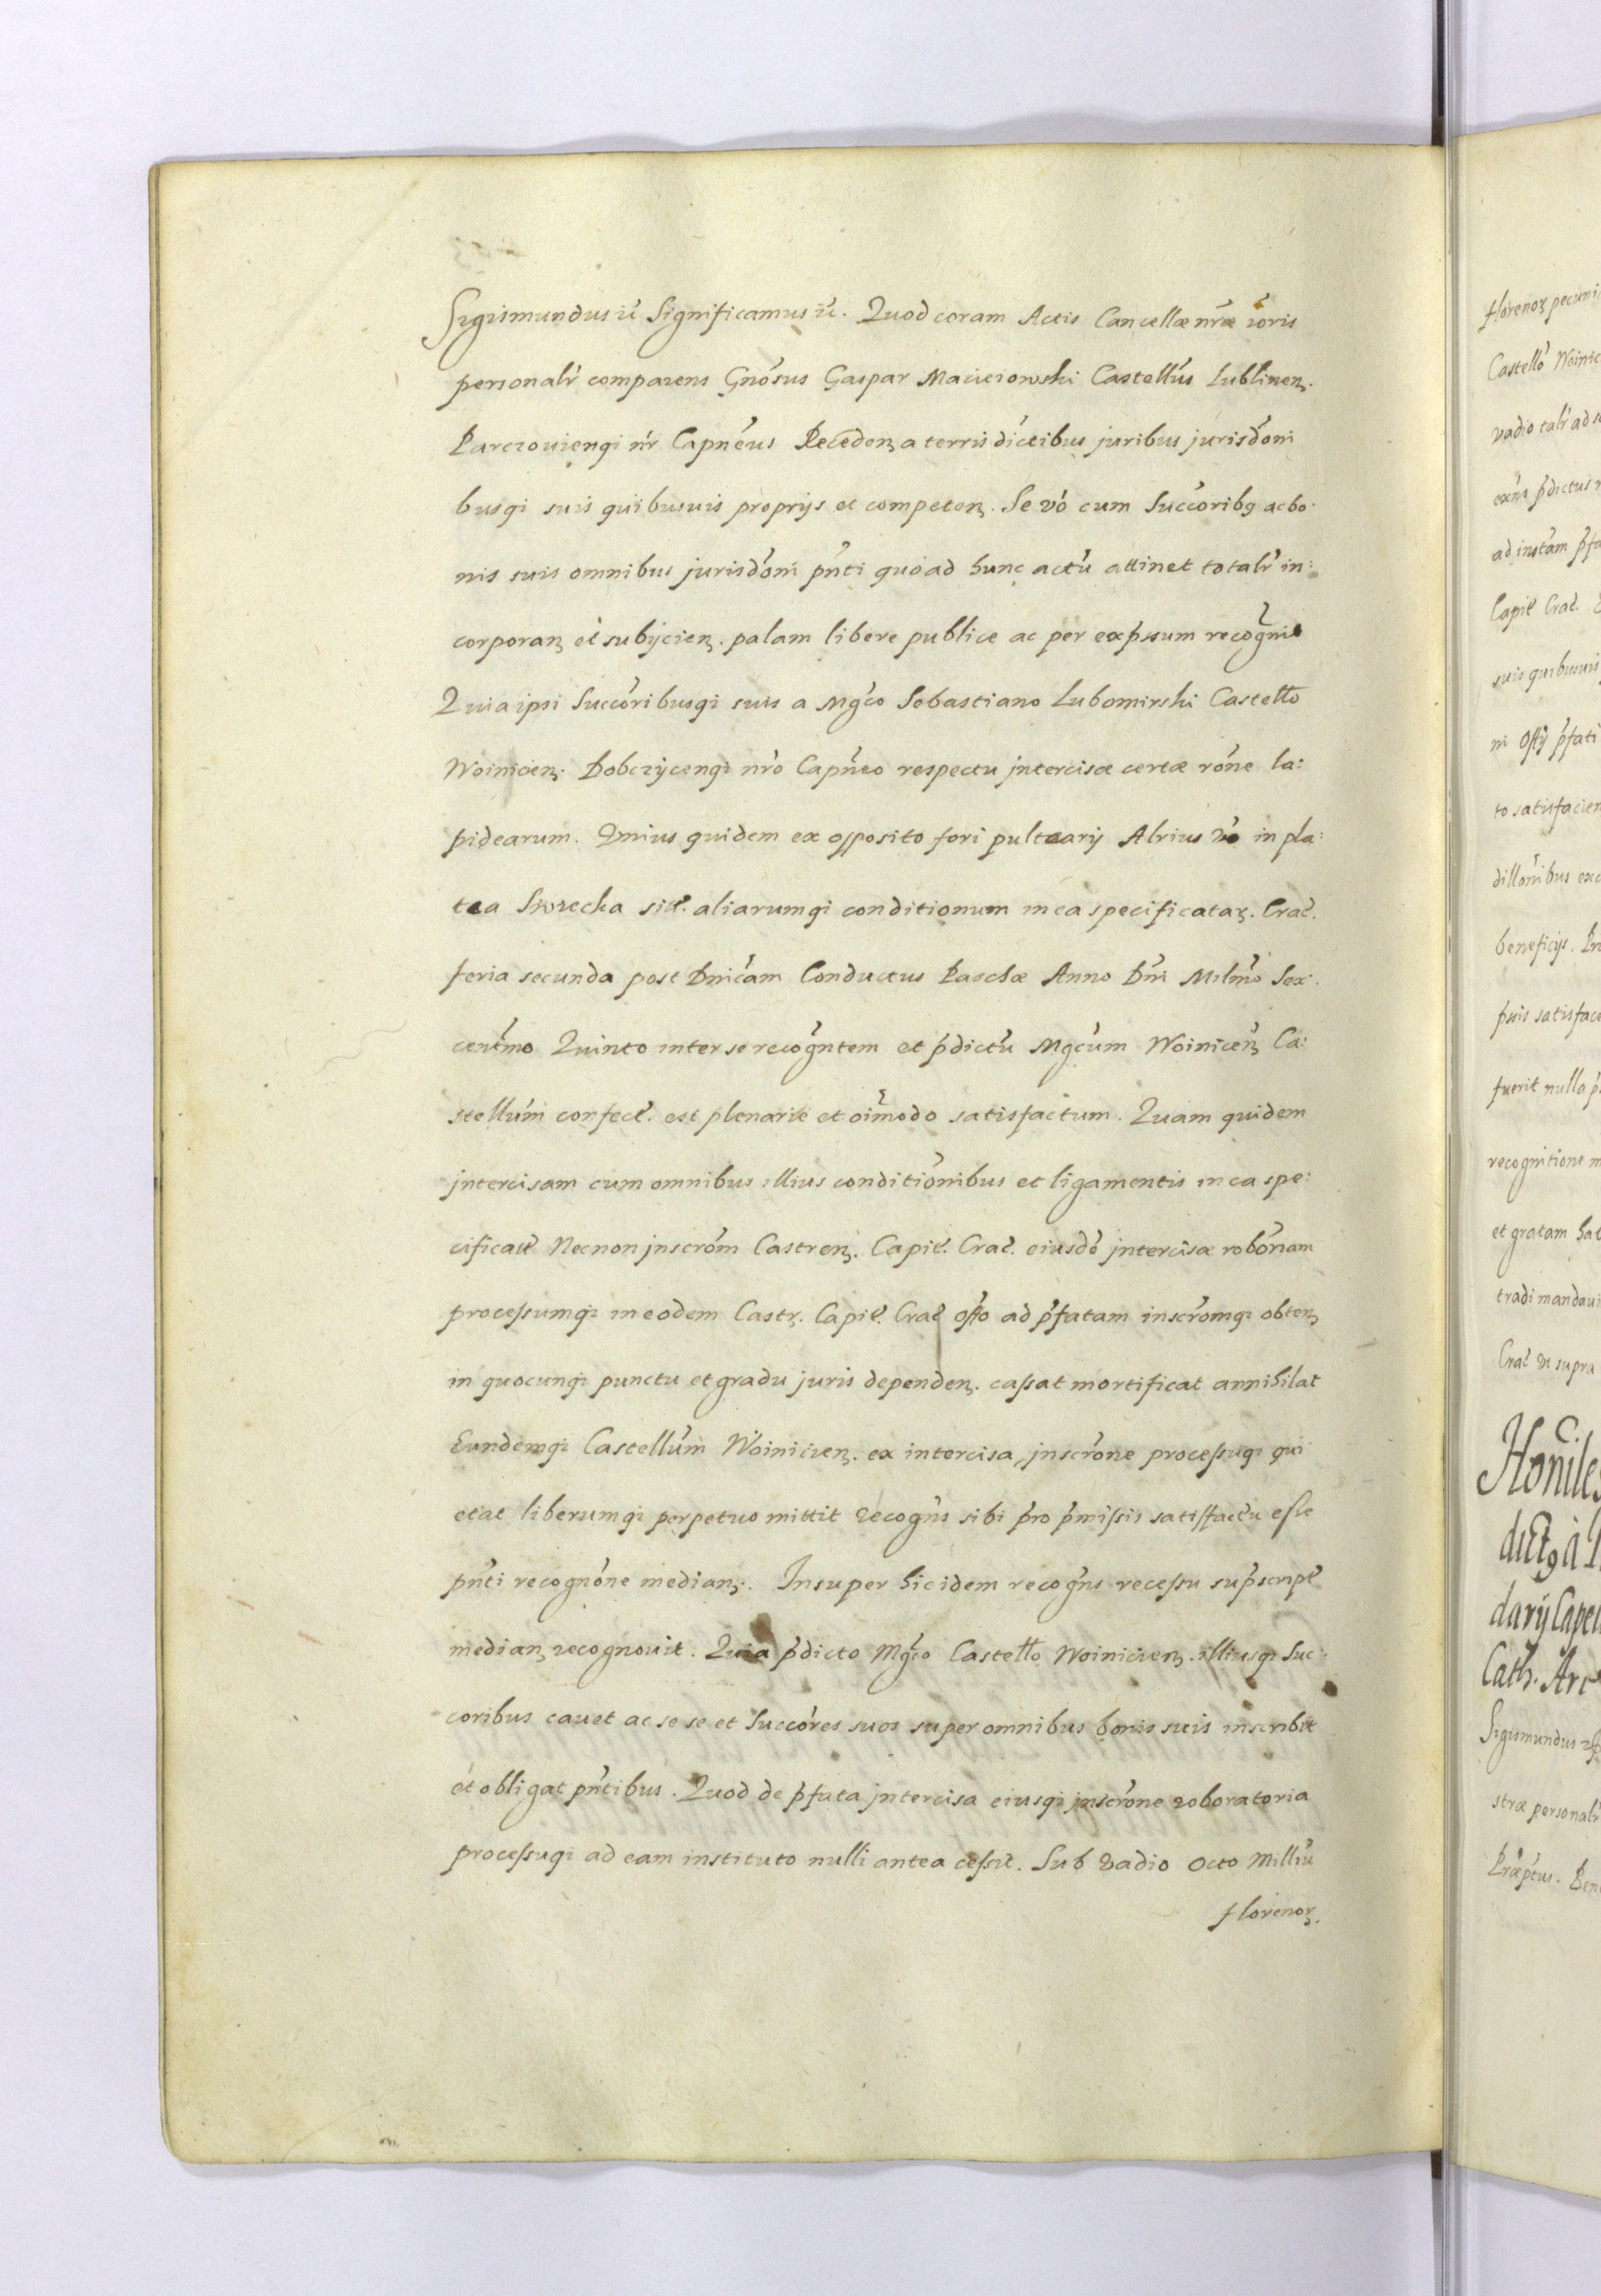 Sigismundus etc̃ Significamus etc̃. Quod coram Actis Cancellæ nr̃æ
personalr̃ comparens Gnõsus Gaspar Macieiowski Castellus̃ Lublinen̄.
Parczouienqȝ nr̃ Capnẽus Recedẽnȝ a terris dictĩbus juribus jurisdõni
busqȝ suis quibusuis proprijs et competenȝ. Se võ cum Succõribȝ ac bo:
nis suis omnibus jurisdõni pñti quo ad hunc actũ attinet totalr̃ in:
corporanȝ et subijcienȝ. palam libere publice ac per exp̃ssum recogñ
Quia ipsi Succõribusqȝ suis a Mgc̃o Sebastiano Lubomirski Castello
Woinicienȝ. Dobczÿcenqȝ nr̃o Capñeo respectu jntercisæ certæ rõne la:
pidearum. Vnius quidem ex opposito fori pultearij Alrius võ in pla:
tea Siwrecka sitt. aliarumqȝ conditionum in ea specificatarȝ. Crac̃.
feria secunda post Dnicãm Conductus Paschæ Anno Dñi Milmõ Sex:
centmõ Quinto inter se recogñtem et p̃dictũ Mgcũm Woinicenȝ Ca:
stellum̃ confect. est plenarie et oim̃odo satisfactum. Quam quidem
jntercisam cum omnibus illius conditiõnibus et ligamentis in ea spe:
cificat Necnon jnscrõm Castrenȝ. Capit. Crac̃. eiusdẽ jntercisæ robõriam
processumqȝ in eodem Castrȝ. Capit. Crac̃ offo ad p̃fatam inscrõmqȝ obtenȝ
in quocunqȝ punctu et gradu juris dependenȝ. cassat mortificat annihilat
Eundemqȝ Castellum̃ Woinicienȝ. ex intercisa, jnscrõne processuqȝ qui
etat liberumqȝ perpetuo mittit recogñs sibi pro p̃missis satisfactũ esse
pñti recognõne medianȝ. Insuper hic idem recogñs recessu sup̃script
medianȝ recognouit. Quia p̃dicto Mgc̃o Castello Woinicienȝ. illiusqȝ Suc:
coribus cauet ac se se et Succõres suos super omnibus bonis suis inscribit
et obligat pñtibus. Quod de p̃fata jntercisa eiusqȝ jnscrõne roboratoria
processuqȝ ad eam instituto nulli antea cessit. Sub vadio Octo Milliũ
florenorȝ.
florenorȝ
Castello
vadio talr̃ ad
p̃dictus
ad instam̃
Capit Crac̃.
suis quibusuis
ni Offij p̃fati
beneficijs.
fuerit nulla
recognitione
et gratam
Crac̃ ut supra
Sigismundus
stræ personalr̃